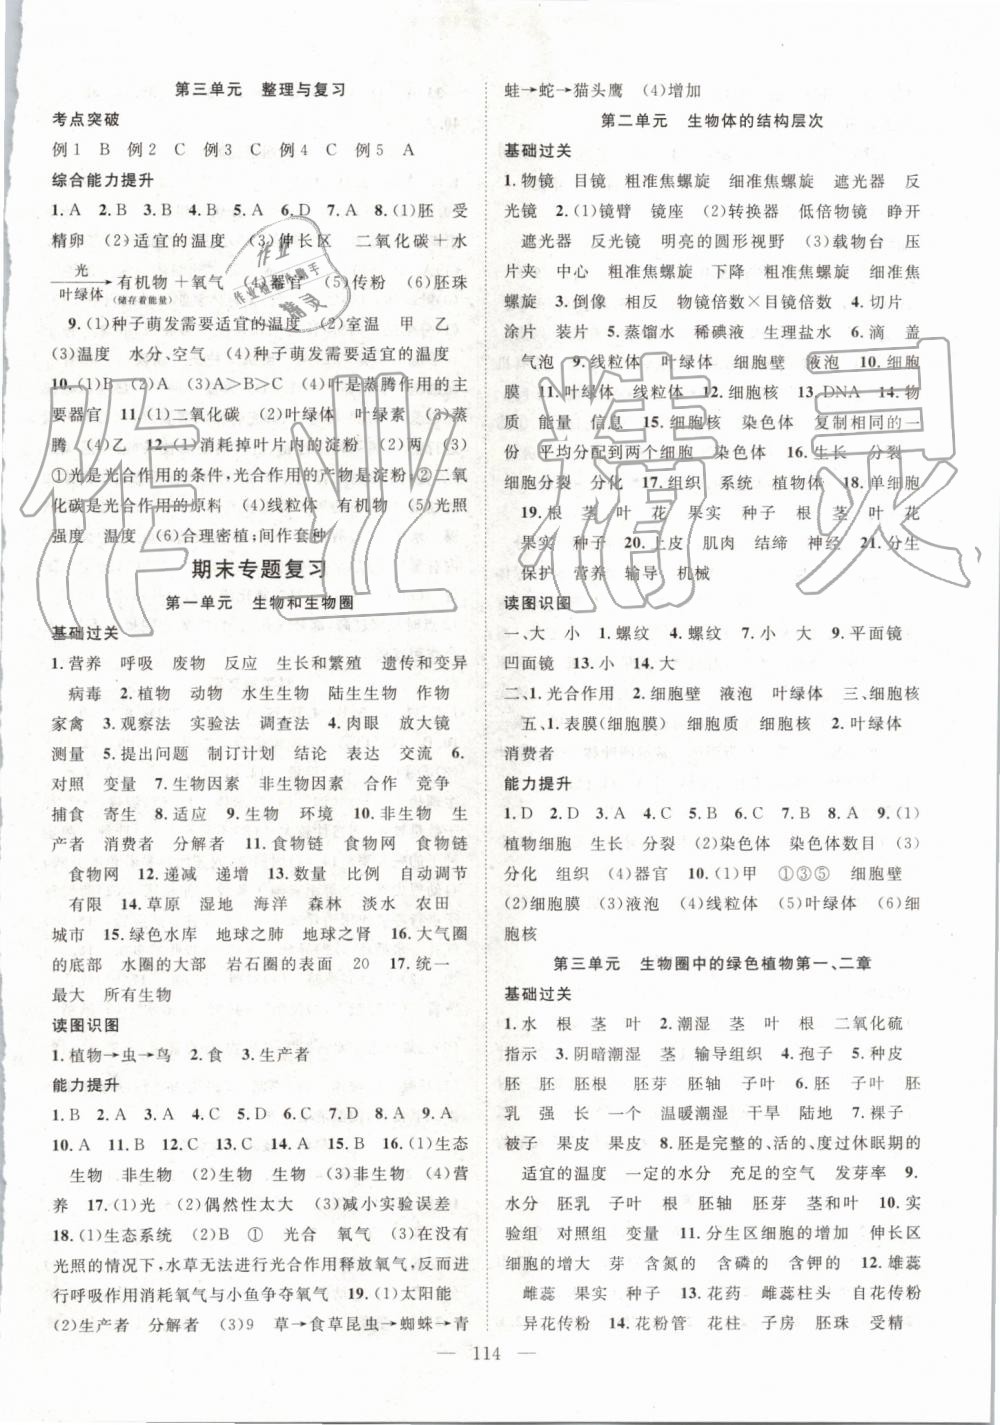 第三单元　整理与复习
考点突破
例1　B　例2　C　例3　C　例4　C　例5　A
综合能力提升
1.A　2.B　3.B　4.B　5.A　6.D　7.A　8.(1)胚　受
精卵　(2)适宜的温度　(3)伸长区　二氧化碳＋水
光
叶绿体
→有机物＋氧气　(4)器官　(5)传粉　(6)胚珠
(储存着能量)
9.(1)种子萌发需要适宜的温度　(2)室温　甲　乙
(3)温度　水分、空气　(4)种子萌发需要适宜的温度
10.(1)B　(2)A　(3)A＞B＞C　(4)叶是蒸腾作用的主
要器官　11.(1)二氧化碳　(2)叶绿体　叶绿素　(3)蒸
腾　(4)乙　12.(1)消耗掉叶片内的淀粉　(2)两　(3)
①光是光合作用的条件,光合作用的产物是淀粉②二氧
化碳是光合作用的原料　(4)线粒体　有机物　(5)光照
强度　温度　(6)合理密植;间作套种
期末专题复习
第一单元　生物和生物圈
基础过关
1.营养　呼吸　废物　反应　生长和繁殖　遗传和变异
病毒　2.植物　动物　水生生物　陆生生物　作物
家禽　3.观察法　实验法　调查法　4.肉眼　放大镜
测量　5.提出问题　制订计划　结论　表达　交流　6.
对照　变量　7.生物因素　非生物因素　合作　竞争
捕食　寄生　8.适应　9.生物　环境　10.非生物　生
产者　消费者　分解者　11.食物链　食物网　食物链
食物网　12.递减　递增　13.数量　比例　自动调节
有限　14.草原　湿地　海洋　森林　淡水　农田
城市　15.绿色水库　地球之肺　地球之肾　16.大气圈
的底部　水圈的大部　岩石圈的表面　20　17.统一
最大　所有生物
读图识图
1.植物→虫→鸟　2.食　3.生产者
能力提升
1.B　2.A　3.A　4.C　5.C　6.B　7.A　8.A　9.A
10.A　11.B　12.C　13.C　14.A　15.B　16.(1)生态
生物　非生物　(2)生物　生物　(3)非生物　(4)营
养　17.(1)光　(2)偶然性太大　(3)减小实验误差
18.(1)生态系统　(2)B　①　光合　氧气　(3)在没有
光照的情况下,水草无法进行光合作用释放氧气,反而进
行呼吸作用消耗氧气与小鱼争夺氧气　19.(1)太阳能
(2)生产者　分解者　(3)9　草→食草昆虫→蜘蛛→青
蛙→蛇→猫头鹰　(4)增加
第二单元　生物体的结构层次
基础过关
1.物镜　目镜　粗准焦螺旋　细准焦螺旋　遮光器　反
光镜　2.(1)镜臂　镜座　(2)转换器　低倍物镜　睁开
遮光器　反光镜　明亮的圆形视野　(3)载物台　压
片夹　中心　粗准焦螺旋　下降　粗准焦螺旋　细准焦
螺旋　3.倒像　相反　物镜倍数×目镜倍数　4.切片
涂片　装片　5.蒸馏水　稀碘液　生理盐水　6.滴　盖
气泡　9.线粒体　叶绿体　细胞壁　液泡　10.细胞
膜　11.叶绿体　线粒体　12.细胞核　13.DNA　14.物
质　能量　信息　15.细胞核　染色体　复制相同的一
份　平均分配到两个细胞　染色体　16.生长　分裂
细胞分裂　分化　17.组织　系统　植物体　18.单细胞
19.根　茎　叶　花　果实　种子　根　茎　叶　花
果实　种子　20.上皮　肌肉　结缔　神经　21.分生
保护　营养　输导　机械
读图识图
一、大　小　1.螺纹　4.物镜　7.小　大　小　9.平面镜
凹面镜　13.小　14.大
二、1.光合作用　2.细胞壁　液泡　叶绿体　三、细胞核
五、1.表膜(细胞膜)　细胞质　细胞核　2.叶绿体
消费者
能力提升
1.D　2.D　3.A　4.C　5.C　6.B　7.D　8.A　9.(1)
植物细胞　生长　分裂　(2)染色体　染色体数目　(3)
分化　组织　(4)器官　10.(1)甲　①③⑤　细胞壁
(2)细胞膜　(3)液泡　(4)线粒体　(5)叶绿体　(6)细
胞核
第三单元　生物圈中的绿色植物第一、二章
基础过关
1.水　根　茎　叶　2.潮湿　茎　叶　根　二氧化硫
指示　3.阴暗潮湿　茎　输导组织　4.孢子　5.种皮
胚　胚　胚根　胚芽　胚轴　子叶　胚　子叶　胚
乳　强　长　一个　温暖潮湿　干旱　陆地　7.裸子
被子　果皮　果皮　8.胚是完整的、活的、度过休眠期的
适宜的温度　一定的水分　充足的空气　发芽率　9.
水分　胚乳　子叶　根　胚轴　胚芽　茎和叶　10.实
验组　对照组　变量　11.分生区细胞的增加　伸长区
细胞的增大　芽　含氮的　含磷的　含钾的　12.雄蕊
雌蕊　果实　种子　13.花药　雌蕊柱头　自花传粉
异花传粉　14.花粉管　花柱　子房　胚珠　受精
— 114 —
作业精灵